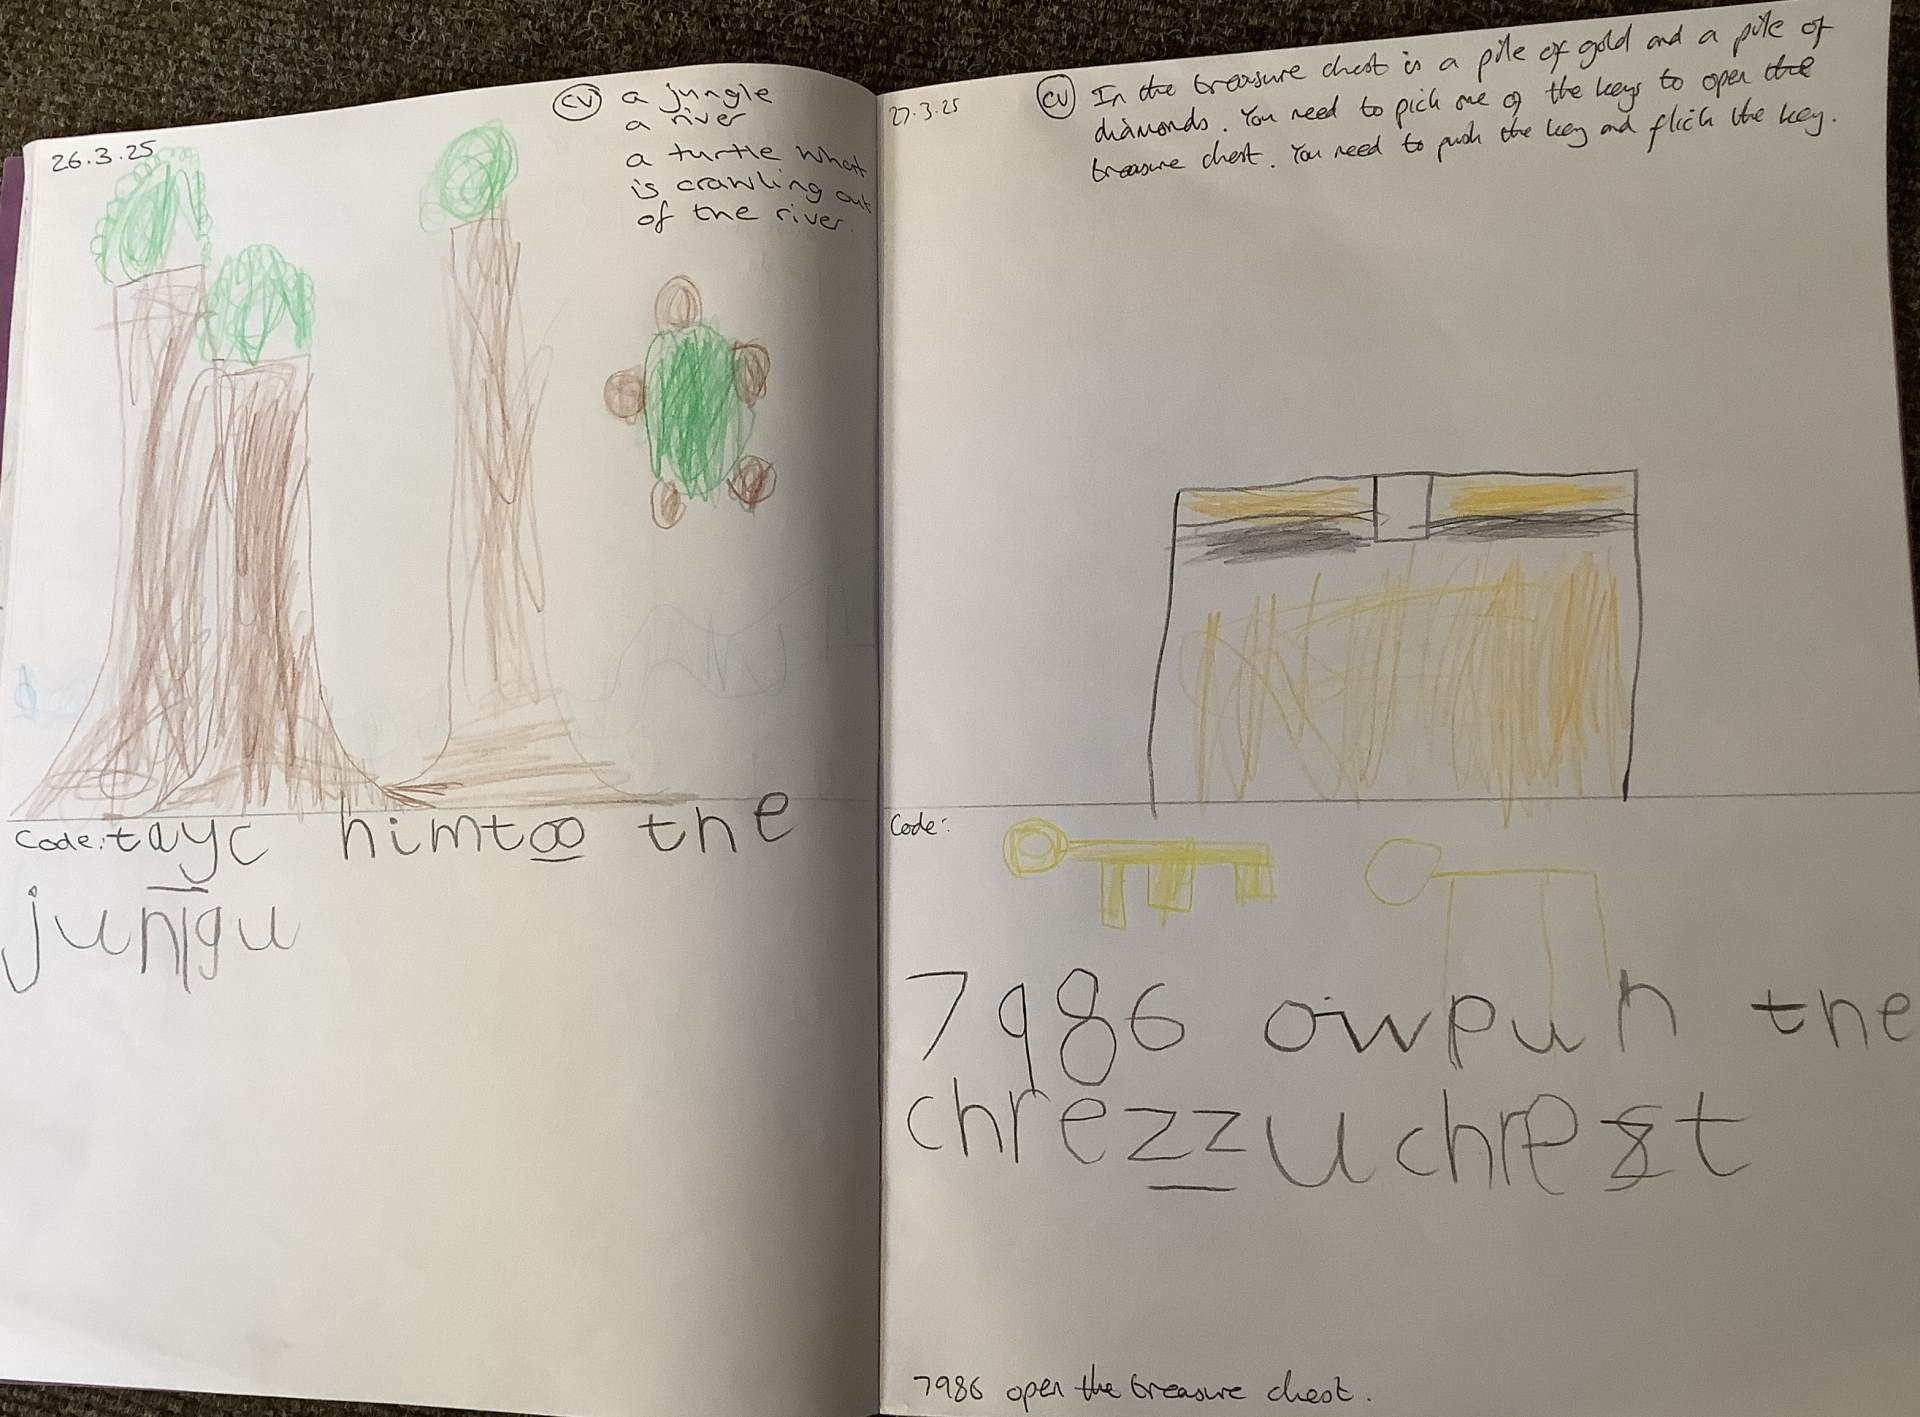 26.3.25
CV a jungle
a river
a turtle what
is crawling out
of the river.
Code: tayc himtoo the
jungu
27.3.25
CV In the treasure chest is a pile of gold and a pile of
diamonds. You need to pick one of the keys to open the
treasure chest. You need to push the key and flick the key.
Code:
7986 owpun the
chrezzuchrest
7986 open the treasure chest.